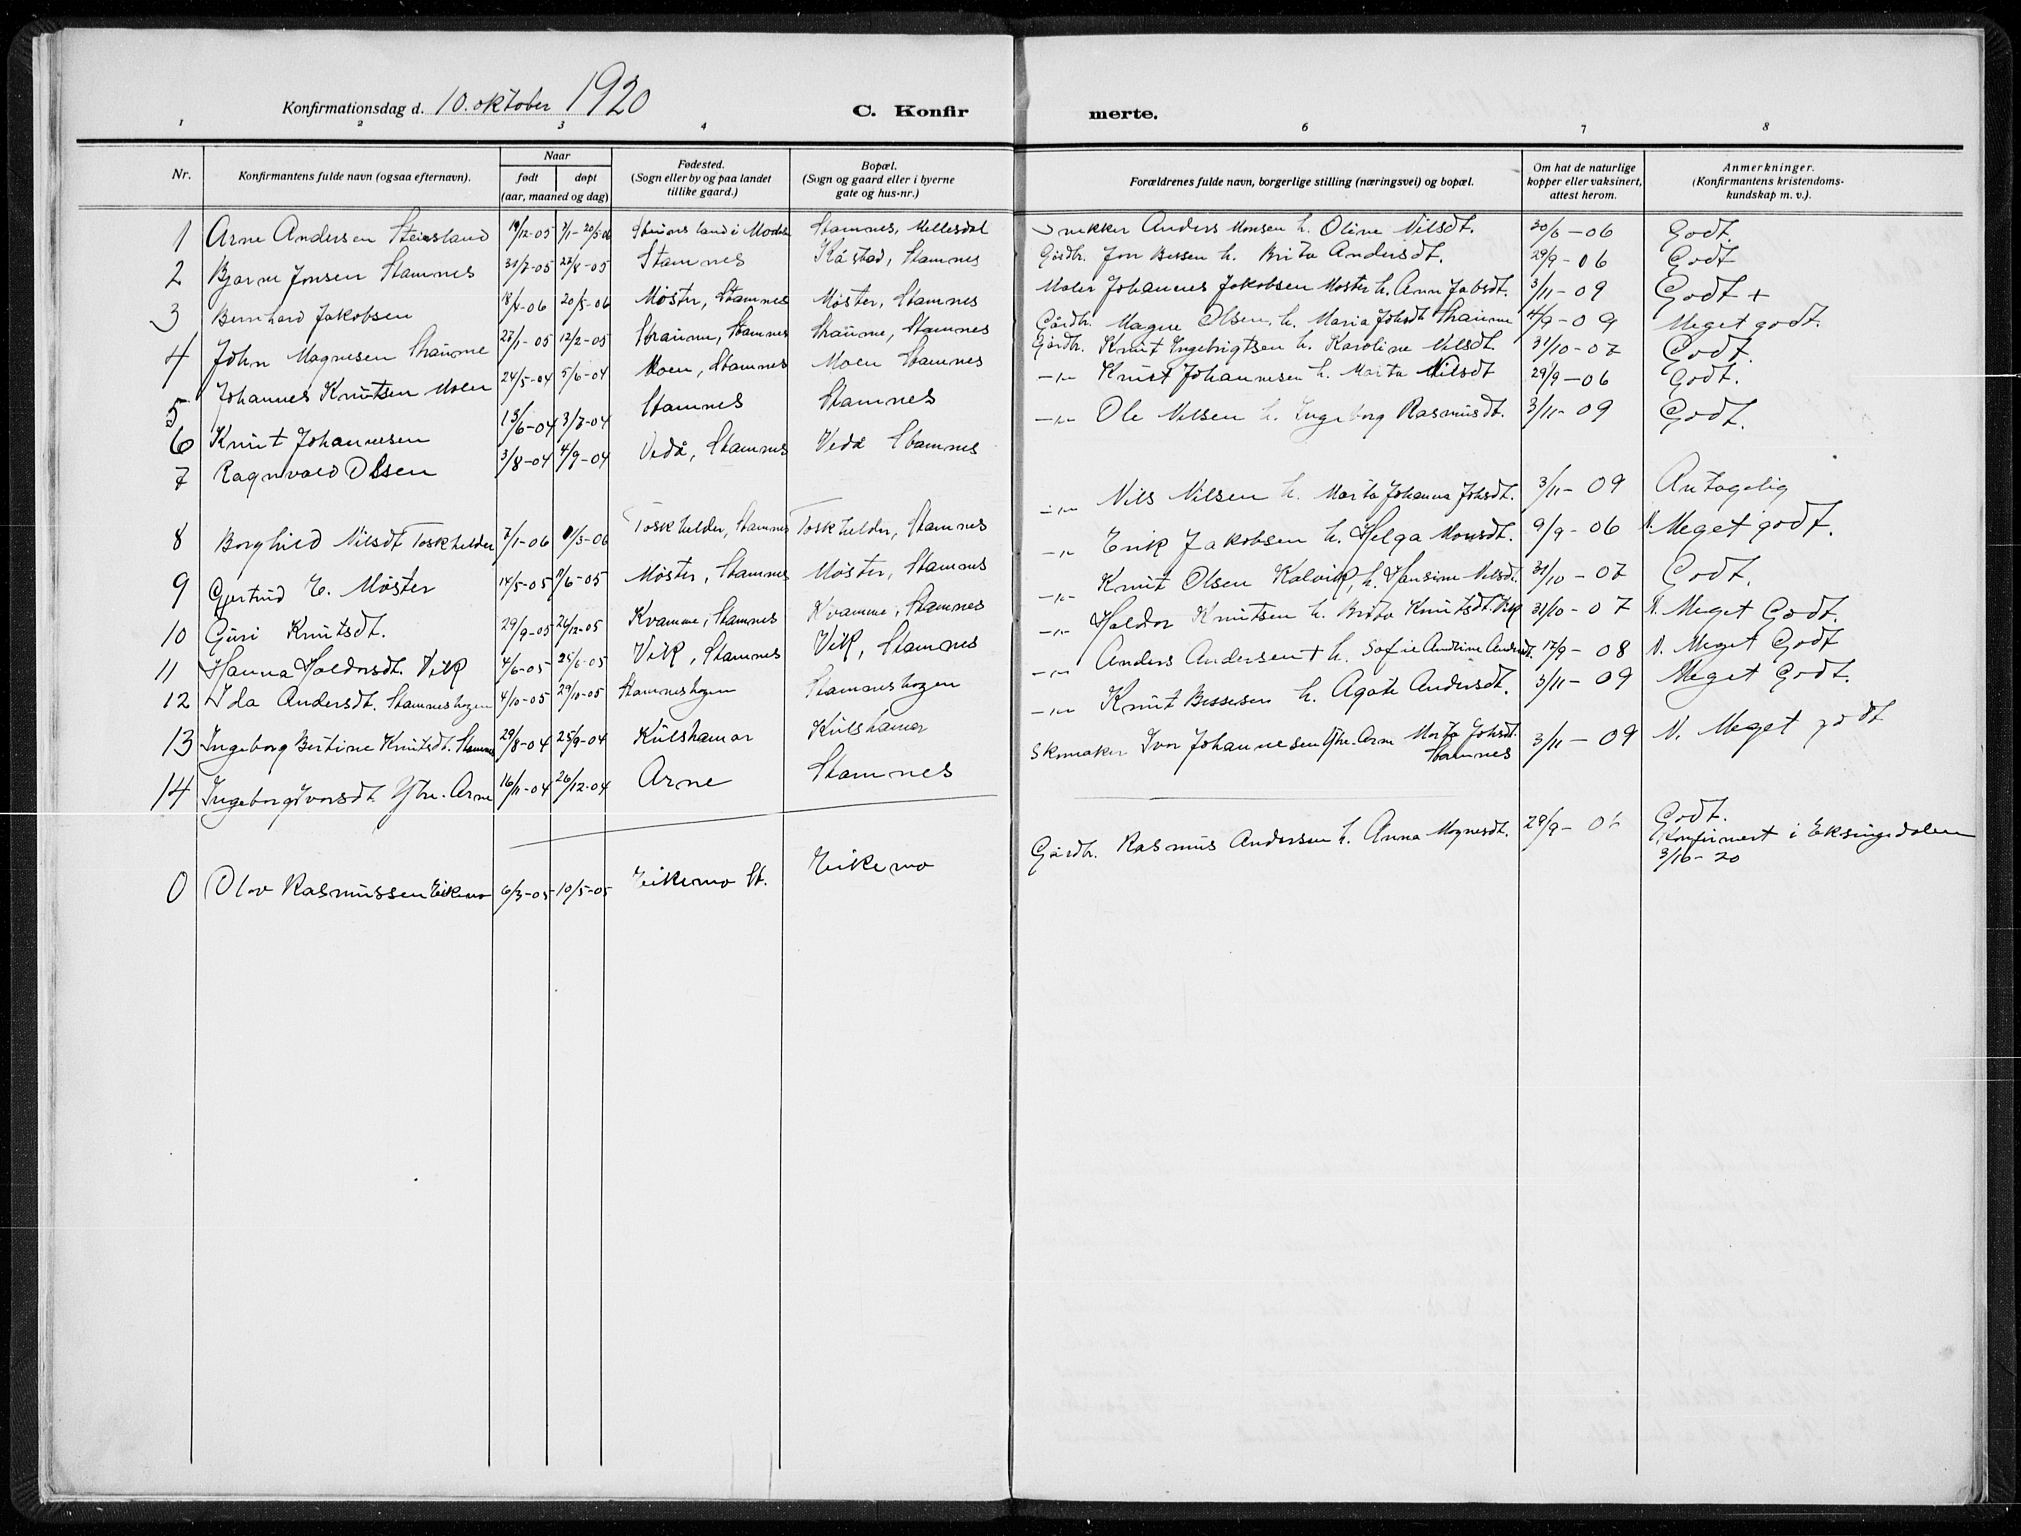 Konfirmationsdag d. 10. oktober 1920
C. Konfirmerte.
1 2 3 4 6 7 8
Nr. Konfirmantens fulde navn (ogsaa efternavn). Naar født døpt (aar, maaned og dag) Fødested. (Sogn eller by og paa landet tillike gaard.) Bopæl. (Sogn og gaard eller i byerne gate og hus-nr.) Forældrenes fulde navn, borgerlige stilling (næringsvei) og bopæl. Om hat de naturlige kopper eller vaksinert, attest herom. Anmerkninger. (Konfirmantens kristendomskundskap m. v.).
1 Arne Andersen Steinsland 19/12-05 Steinsland i Stamnes, Mellesdal Snekker Anders Monsen h. Oline Nilsdt. 30/6-06 Godt.
2 Bjarne Jonsen Stamnes 31/7-05 27/8-05 Stamnes Kåstad, Stamnes Gårdbr. Jon Bessen h. Brita Andersdt. 29/9-06 Godt
3 Bernhard Jakobsen 18/4-06 20/5-06 Møster, Stamnes Møster, Stamnes Maler Johannes Jakobsen Møster h. Anna 3/11-09 Godt +
4 John Magnesen Straume 27/1-05 12/2-05 Straume, Stamnes Straume, Stamnes Gårdbr. Magne Olsen, h. Maria Johsdt Straume 4/9-09 Meget godt.
5 Johannes Knutsen Moen 24/5-04 5/6-04 Moen, Stamnes Moen Stamnes Gårdbr. Knut Ingebrigtsen h. Karoline Nilsdt. 31/10-07 Godt.
6 Knut Johannesen 15/6-04 3/7-04 Stamnes Stamnes -"- Knut Johannesen h. Marta Nilsdt 29/9-06 Godt.
7 Ragnvald Olsen 3/8-04 4/9-04 Vedå, Stamnes Vedå Stamnes -"- Ole Nilsen h. Ingeborg Rasmusdt. 3/11-09 Godt.
8 Borghild Nilsdt Toskhelder 7/1-06 Toskhelder, Stamnes Toskhelder, Stamnes -"- Nils Nilsen h. Marta Johanna Johsdt. 3/11-09 Antagelig
9 Gjertrud E. Møster 14/5-05 Møster, Stamnes Møster, Stamnes -"- Erik Jakobsen h. Helga Monsdt. 9/9-06 N. Meget godt.
10 Guri Knutsdt. 29/9-05 26/12-05 Kvamme, Stamnes Kvamme, Stamnes -"- Knut Olsen Kalvik, h. Hansine Nilsdt. 31/10-07 Godt.
11 Hanna Haldorsdt. Vik 4/6-05 25/6-05 Vik, Stamnes Vik, Stamnes -"- Haldor Knutsen h. Brita Knutsdt. Vik 31/10-07 N. Meget Godt.
12 Ida Andersdt. Stamneshagen 4/10-05 29/10-05 Stamneshagen Stamneshagen -"- Anders Andersen + h. Sofie Andrine Andersdt. 17/9-08 N. Meget Godt
13 Ingeborg Bertine Knutsdt. Stamnes 29/8-04 25/9-04 Kulshamar Kulshamar -"- Knut Bessesen h. Agate Andersdt. 3/11-09 Meget Godt.
14 Ingeborg Ivarsdt Ytre-Arne 16/11-04 26/12-04 Arne Stamnes Skomaker Ivar Johannesen Ytre-Arne Marta Johsdt. Stamnes 3/11-09 N. Meget godt
0 Olav Rasmussen Eikemo 6/3-05 10/5-05 Eikemo St. Eikemo Gårdbr. Rasmus Andersen h. Anna Magnesdt. 29/9-06 Godt.
Konfirmert i Eksingedalen
3/10-20